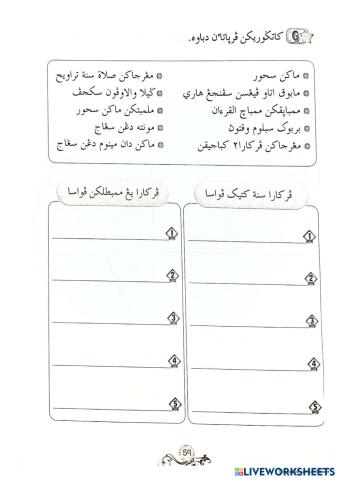 G كاتݢوريكن ڤرياتاءن دباوه.
ماكن سحور
مابوق اتاو ڤيڠسن سڤنجڠ هاري
ممباڽقكن ممباچ القرءان
بربوک سبلوم وقتون
مڠرجاكن ڤركارا٢ كباجيقن
مڠرجاكن صلاة سنة تراويح
ݢيلا والاوڤون سكجڤ
ملمبتكن ماكن سحور
مونته دڠن سڠاج
ماكن دان مينوم دڠن سڠاج
ڤركارا سنة كتيک ڤواسا
1
2
3
4
5
ڤركارا يڠ ممبطلكن ڤواسا
1
2
3
4
5
59
LIVEWORKSHEETS